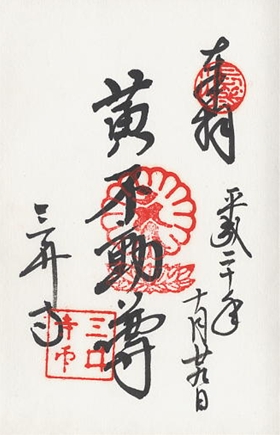 奉拝
平成二十年
十月廿九日
黄不動尊
三井寺
三井
寺印